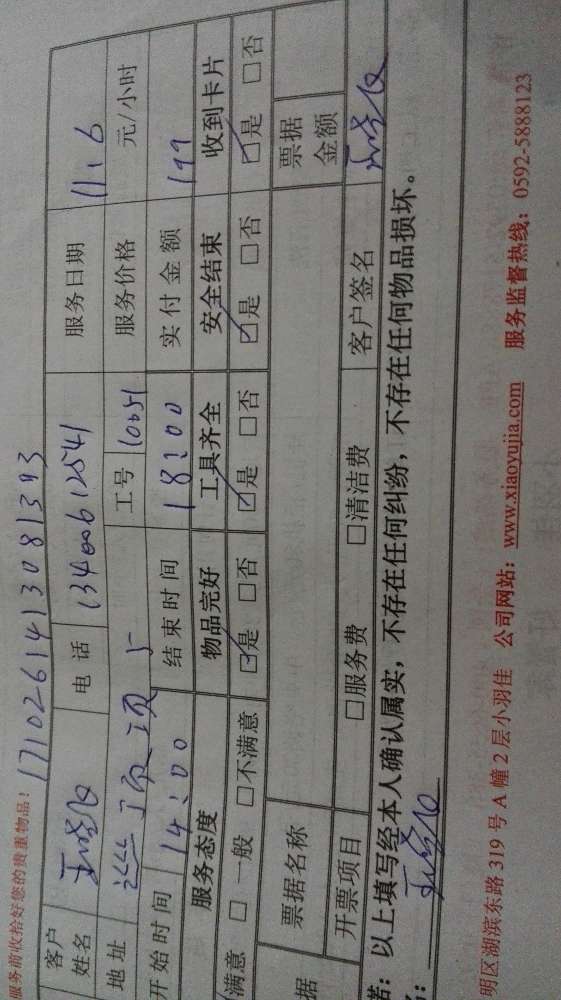 服务前收拾好您的贵重物品！17102614130813 93
客户姓名 电话 13400612541 服务日期 11.6
地址 工号 10051 服务价格 元/小时
开始时间 14:00 结束时间 18:00 实付金额 199
服务态度 物品完好 工具齐全 安全结束 收到卡片
满意 □一般 □不满意 ☑是 □否 ☑是 □否 ☑是 □否 ☑是 □否
据 票据名称 票据金额
开票项目 □服务费 □清洁费 客户签名
诺：以上填写经本人确认属实，不存在任何纠纷，不存在任何物品损坏。
明区湖滨东路 319 号 A 幢 2 层小羽佳 公司网站：www.xiaoyujia.com 服务监督热线：0592-5888123